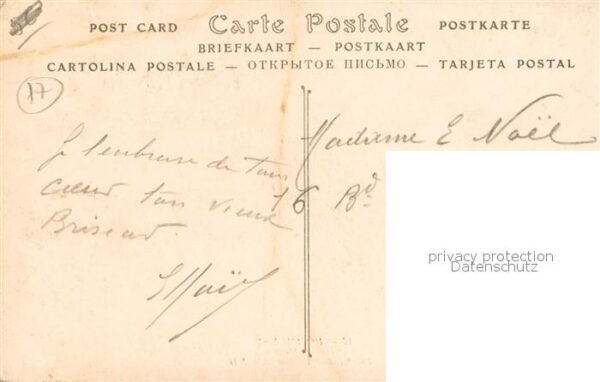 POST CARD Carte Postale POSTKARTE
BRIEFKAART — POSTKAART
CARTOLINA POSTALE — ОТКРЫТОЕ ПИСЬМО — TARJETA POSTAL
17
Madame E Noël
6 Bd
Je t'embrasse de tout
cœur ton vieux
E Noël
privacy protection
Datenschutz